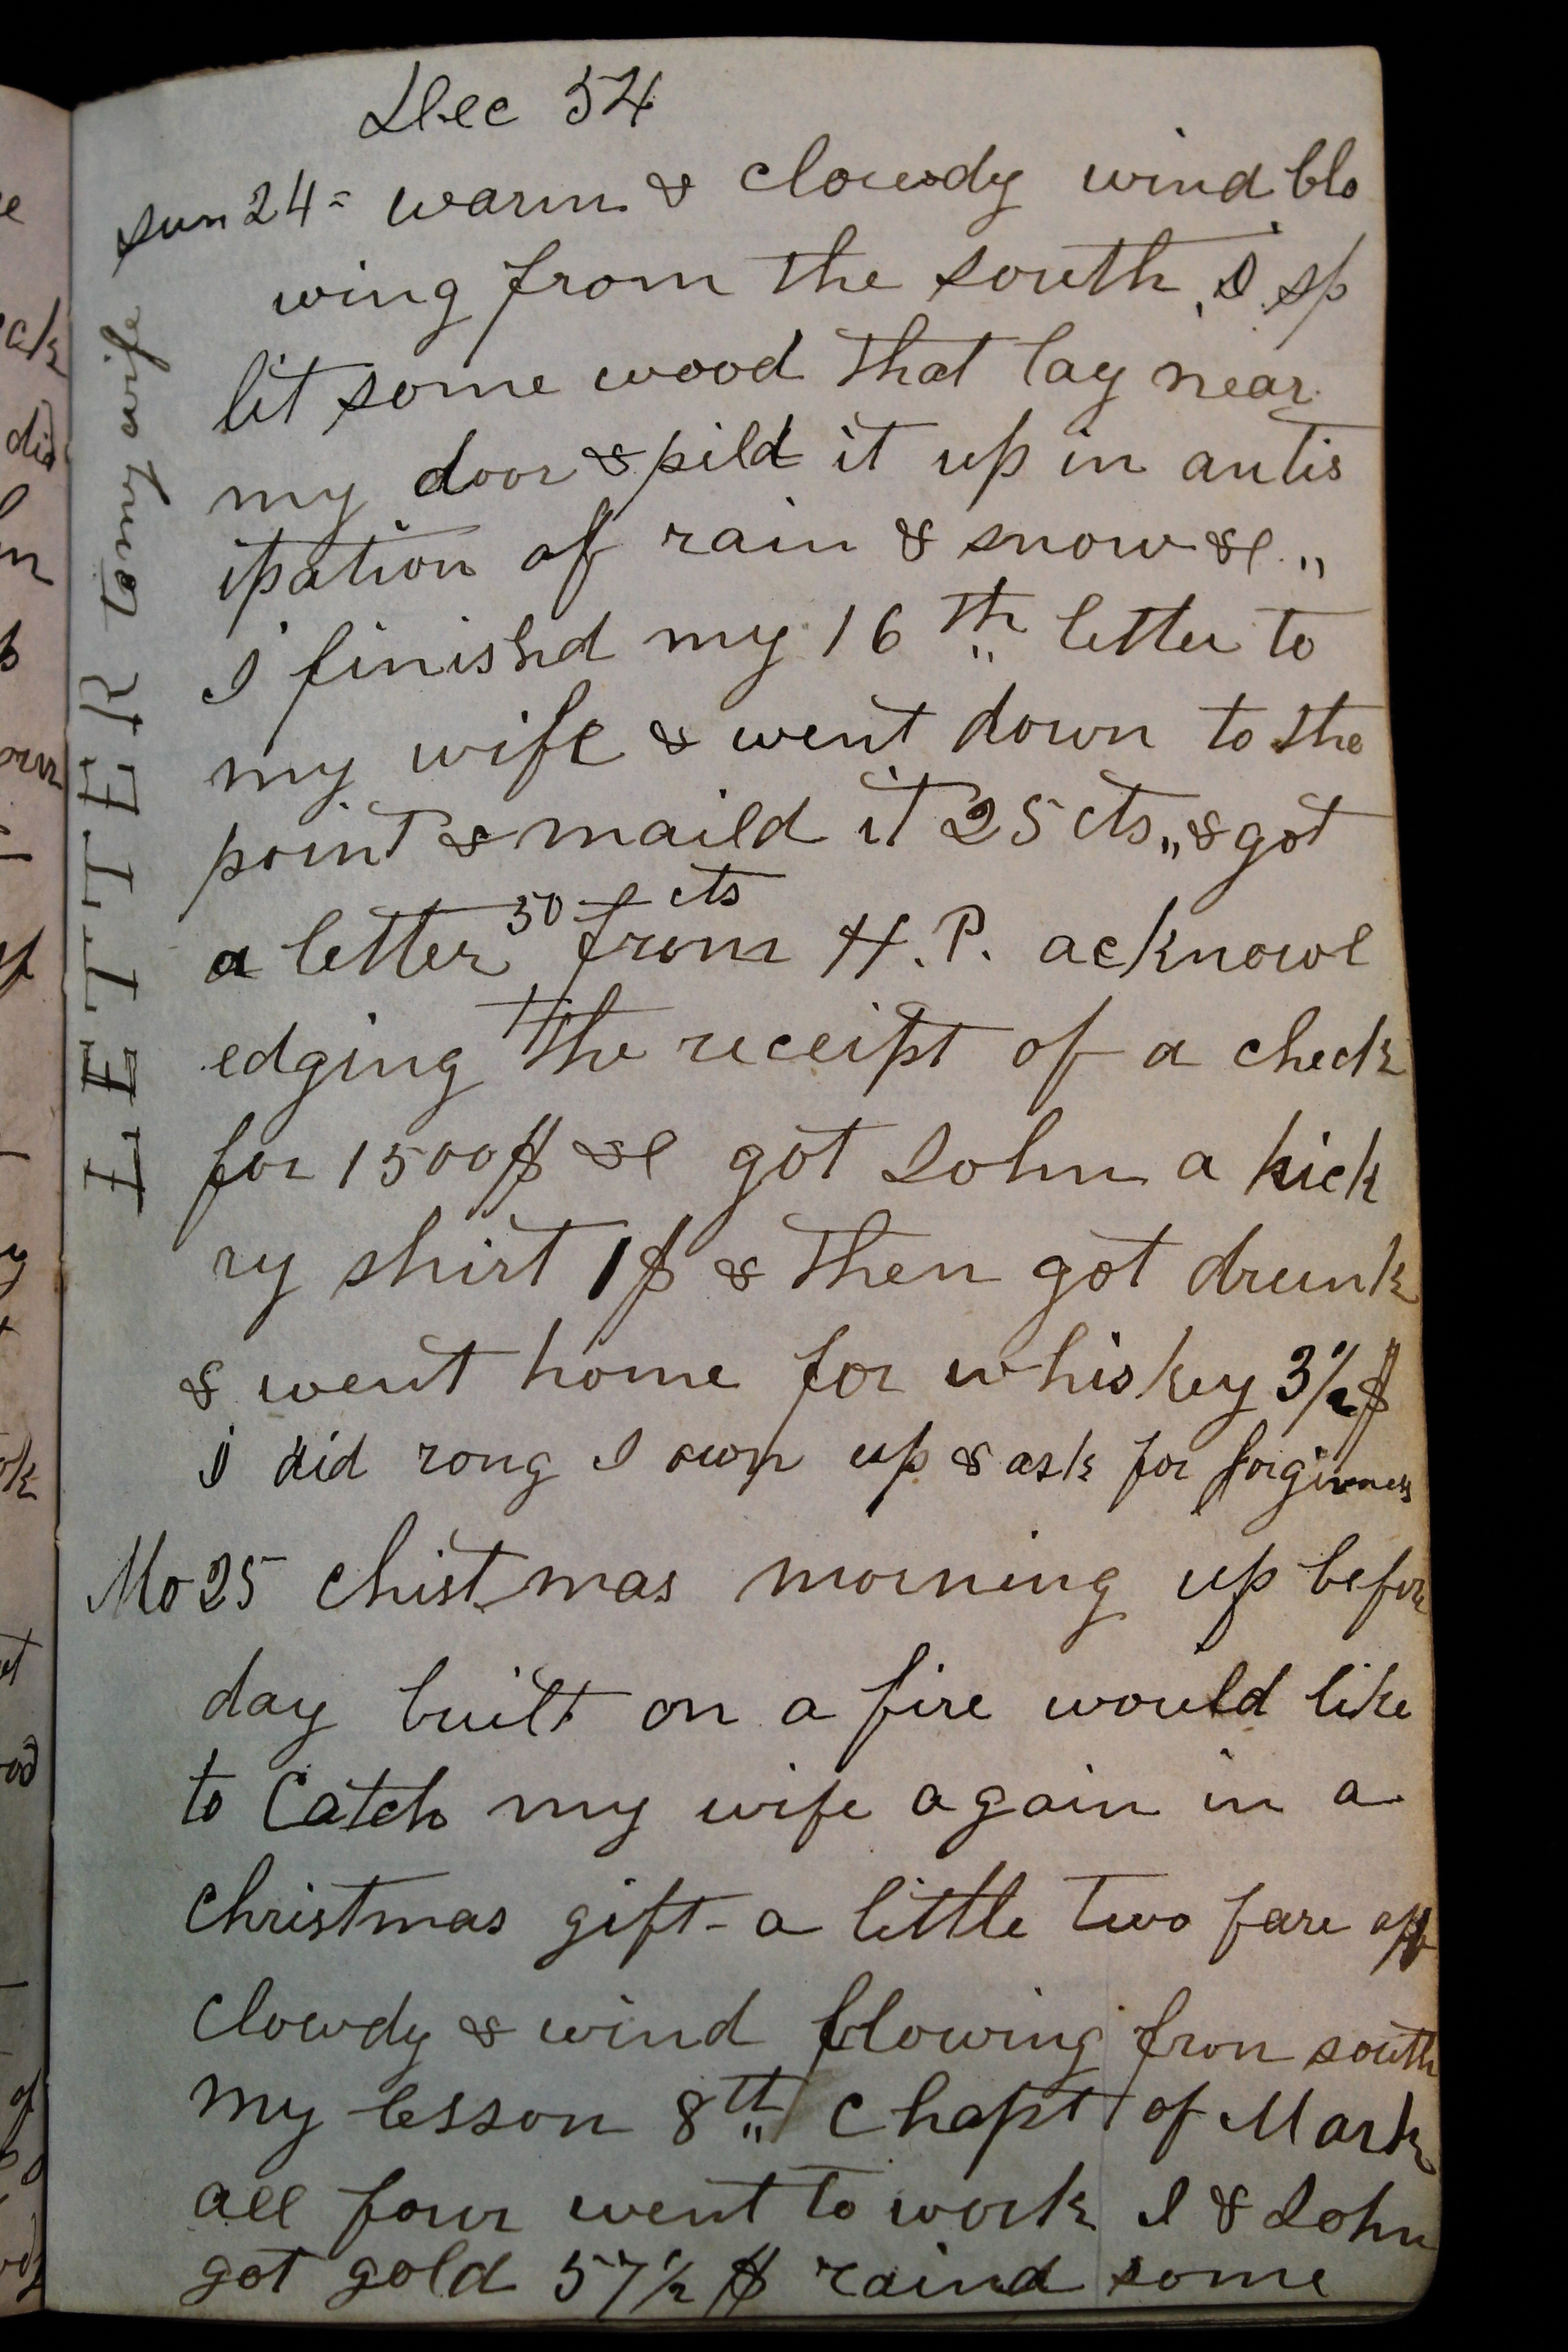 Dec 54
sun 24 = warm & clowdy wind blo
wing from the south, I sp
lit some wood that lay near
my door & pild it up in antis
ipation of rain & snow &c „
I finishd my 16th letter to
my wife & went down to the
point & maild it 25 cts „ & got
a letter 50 cts from H. P. acknowl
edging the receipt of a check
for 1500$ &c got John a hick
ry shirt 1$ & then got drunk
& went home for whiskey 3½$
I did rong I own up & ask for forgivness
Mo 25 Chistmas morning up before
day built on a fire would like
to Catch my wife again in a
christmas gift - a little two fare off
clowdy & wind blowing fron south
my lesson 8th Chapt of Mark
all four went to work I & John
got gold 57½ $ raind some
LETTER to my wife
did